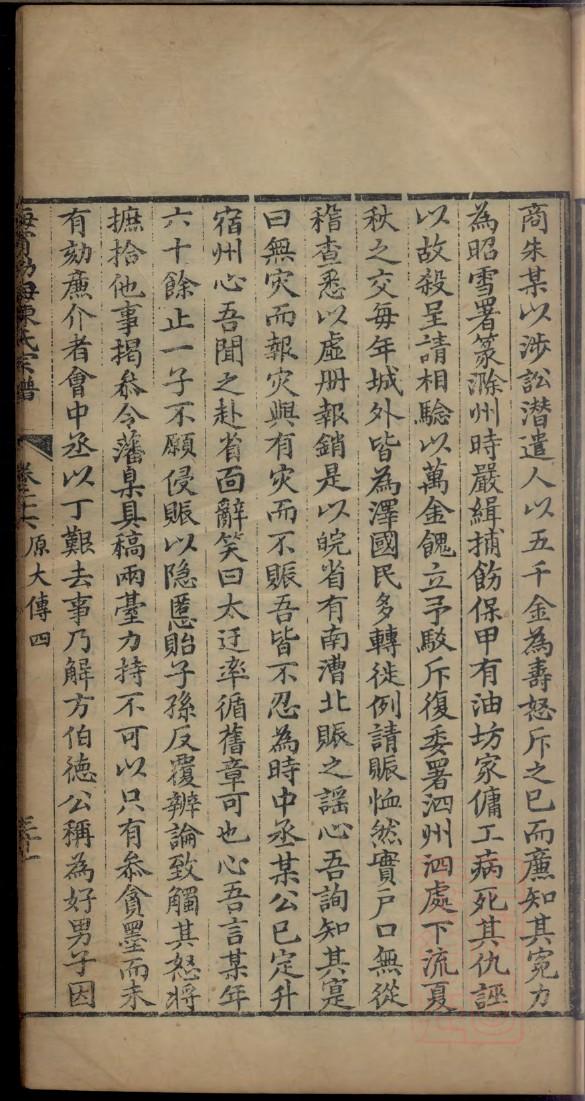 商朱某以涉訟潛遣人以五千金為壽怒斥之已而廉知其寃力
為昭雪署篆滁州時嚴緝捕飭保甲有油坊家傭工病死其仇誣
以故殺呈請相驗以萬金餽立予駁斥復委署泗州泗處下流夏
秋之交每年城外皆為澤國民多轉徙例請賑恤然實戶口無從
稽查悉以虛册報銷是以皖省有南漕北賑之謡心吾詢知其寔
曰無灾而報灾與有灾而不賑吾皆不忍為時中丞某公已定升
宿州心吾聞之赴省面辭笑曰太迂率循舊章可也心吾言某年
六十餘止一子不願侵賑以隐慝貽子孫反覆辨論致觸其怒將
摭拾他事揭叅令藩臬具稿兩臺力持不可以只有叅貪墨而未
有劾廉介者會中丞以丁艱去事乃解方伯德公稱為好男子因
海寧渤海陳氏宗譜
卷二十六
原大傳四